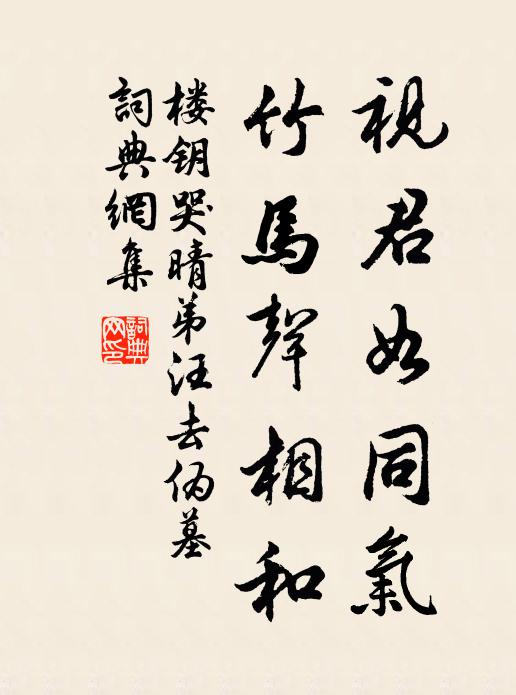 視君如同氣
竹馬聲相和
楼钥哭晴弟汪去伪墓
詞典網集
詞典网印